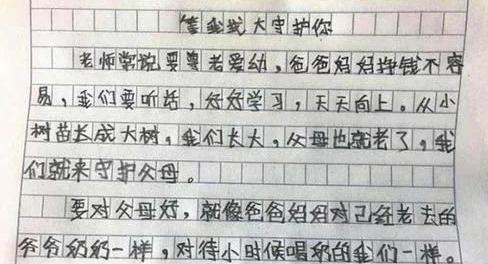 等我长大守护你
老师常说要尊老爱幼，爸爸妈妈挣钱不容
易，我们要听话，好好学习，天天向上。从小
树苗长成大树，我们长大，父母也就老了，我
们就来守护父母。
要对父母好，就像爸爸妈妈对已经老去的
爷爷奶奶一样，对待小时候喝奶的我们一样。